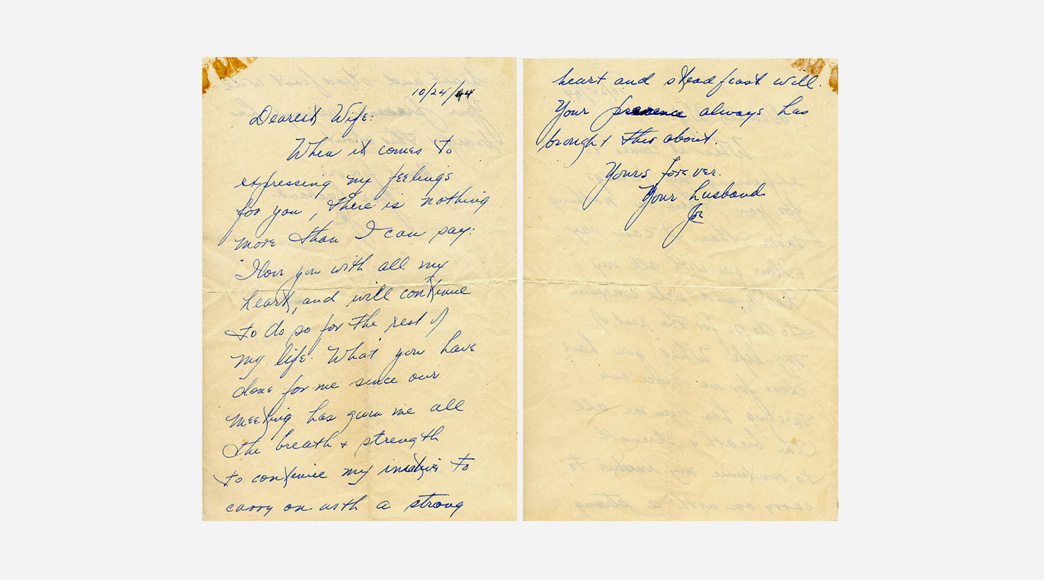 10/24/44
Dearest Wife:
When it comes to
expressing my feelings
for you, there is nothing
more than I can say:
"I love you with all my
heart, and will continue
to do so for the rest of
my life. What you have
done for me since our
meeting has given me all
the breath + strength
to continue my to
carry on with a strong
heart and steadfast will.
Your presence always has
brought this about.
Yours forever.
Your husband
Joe